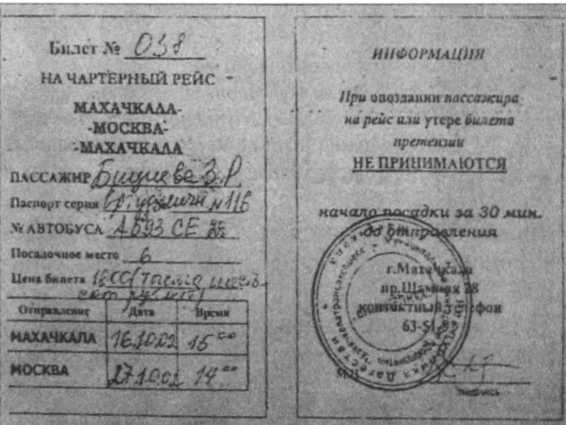 Билет № 038
НА ЧАРТЕРНЫЙ РЕЙС
МАХАЧКАЛА-
-МОСКВА-
-МАХАЧКАЛА
ПАССАЖИР З.Р.
Паспорт серия №116
№ АВТОБУСА А593 СЕ
Посадочное место 6
Цена билета 1600 (тысяча шесть-
сот рублей)
Отправление Дата Время
МАХАЧКАЛА 16.10.02 15 00
МОСКВА 27.10.02 14 00
ИНФОРМАЦИЯ
При опоздании пассажира
на рейс или утере билета
претензии
НЕ ПРИНИМАЮТСЯ
начало посадки за 30 мин.
до отправления
г.Махачкала
пр.Шамиля 28
контактный телефон
подпись